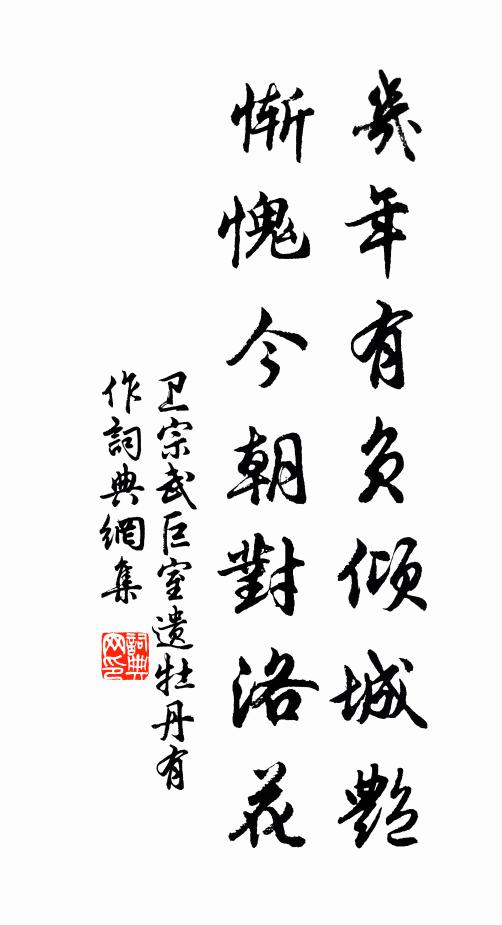 幾年有負傾城艷
慚愧今朝對洛花
卫宗武巨室遗牡丹有
作詞典網集
詞典网印